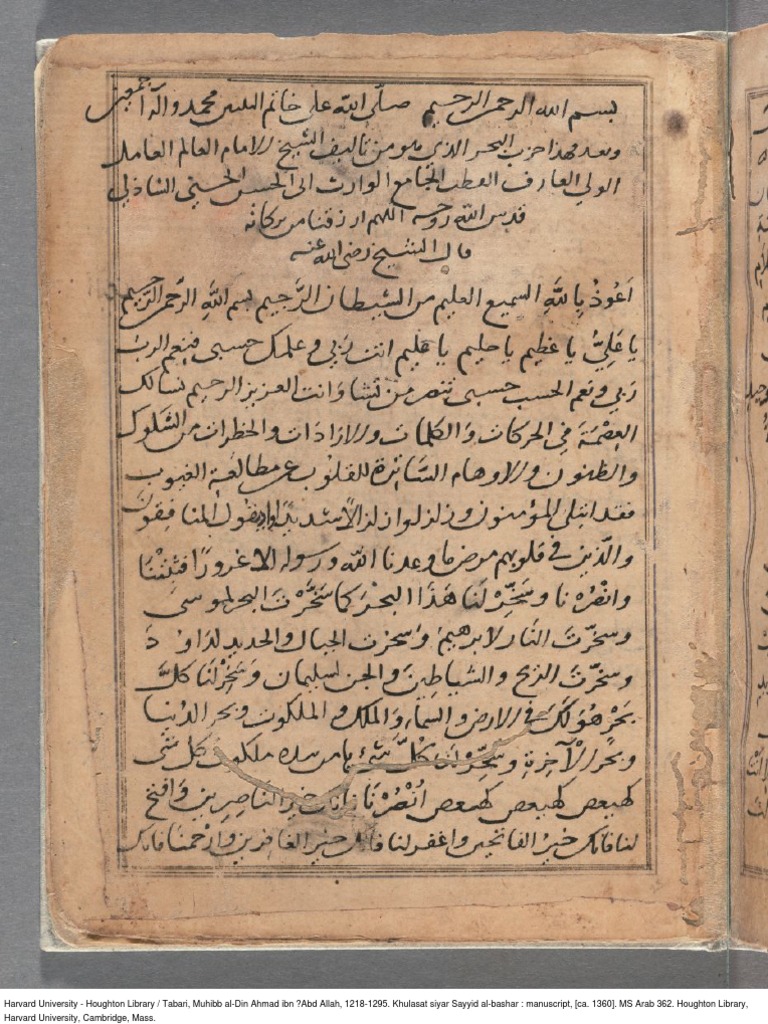 بسم الله الرحمن الرحيم صلى الله على خاتم النبيين محمد واله اجمعين
وبعد فهذا حزب البحر الذي هو من تاليف الشيخ الامام العالم العامل
الولي العارف القطب الجامع الوارث ابى الحسن الحسني الشاذلي
قدس الله روحه اللهم ارزقنا من بركاته
قال الشيخ رضى الله عنه
اَعُوذُ بِاللهِ السميع العليم من الشيطان الرَّجيم بسم اللهِ الرَّحمن الرَّحيم
يا عَلِيُّ يا عَظِيم يا حليم يا عَلِيم انت رَبي وعلمك حسبى فنعم الرب
رَبي ونعم الحسب حسبى تنصر من تشا وَانت العزيز الرحيم نسالك
العِصْمَةَ فِي الحركات وَالكلمات والارَادَات والخطرات من الشكوك
والظنون والاوهام السَّاتِرة للقلوب عن مطالعة الغيوب
فقد ابتلى المؤمنون وزلزلوا زلزالا شديدًا واذ يقول المنافِقون
والَّذين في قلوبهم مرض ما وعدنا الله ورسوله الا غرورًا فثبتنا
وانْصُرْنا وسَخِّرْ لنا هَذَا البحْرَ كما سَخَّرْتَ البحر لموسى
وسخّرتَ النَّار لابرهيم وسخرت الجبال والحديد لداود
وسخّرتَ الريح والشياطِينَ والجن لسليمان وَسَخِّرْلنَا كلَّ
بَحْرٍ هُوَ لَكَ في الارض والسماء وَالملك والملكوت وبحر الدُّنيا
وبحْرَ الْآخِرَةِ وسَخِّرْ لنَا كُلَّ شَيْءٍ يا من بيده ملكوت كل شى
كهيعص كهيعص كهيعص اُنْصُرْنَا فانك خير النَّاصِرِين وَافتح
لنا فانك خَيْرُ الفاتحين واغفر لنا فانك خَيْر الغافرين وارْحمنا فانك
Harvard University - Houghton Library / Tabari, Muhibb al-Din Ahmad ibn ?Abd Allah, 1218-1295. Khulasat siyar Sayyid al-bashar : manuscript, [ca. 1360]. MS Arab 362. Houghton Library,
Harvard University, Cambridge, Mass.